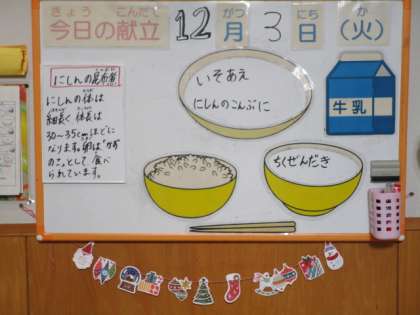 きょう こんだて がつ にち か
今日の献立 12月 3日 (火)
にしんの昆布煮
にしんの体は
細長く 体長は
30〜35cmほどに
なります。卵は"かず
のこ"として 食べ
られています。
いそあえ
にしんのこんぶに
牛乳
ちくぜんだき